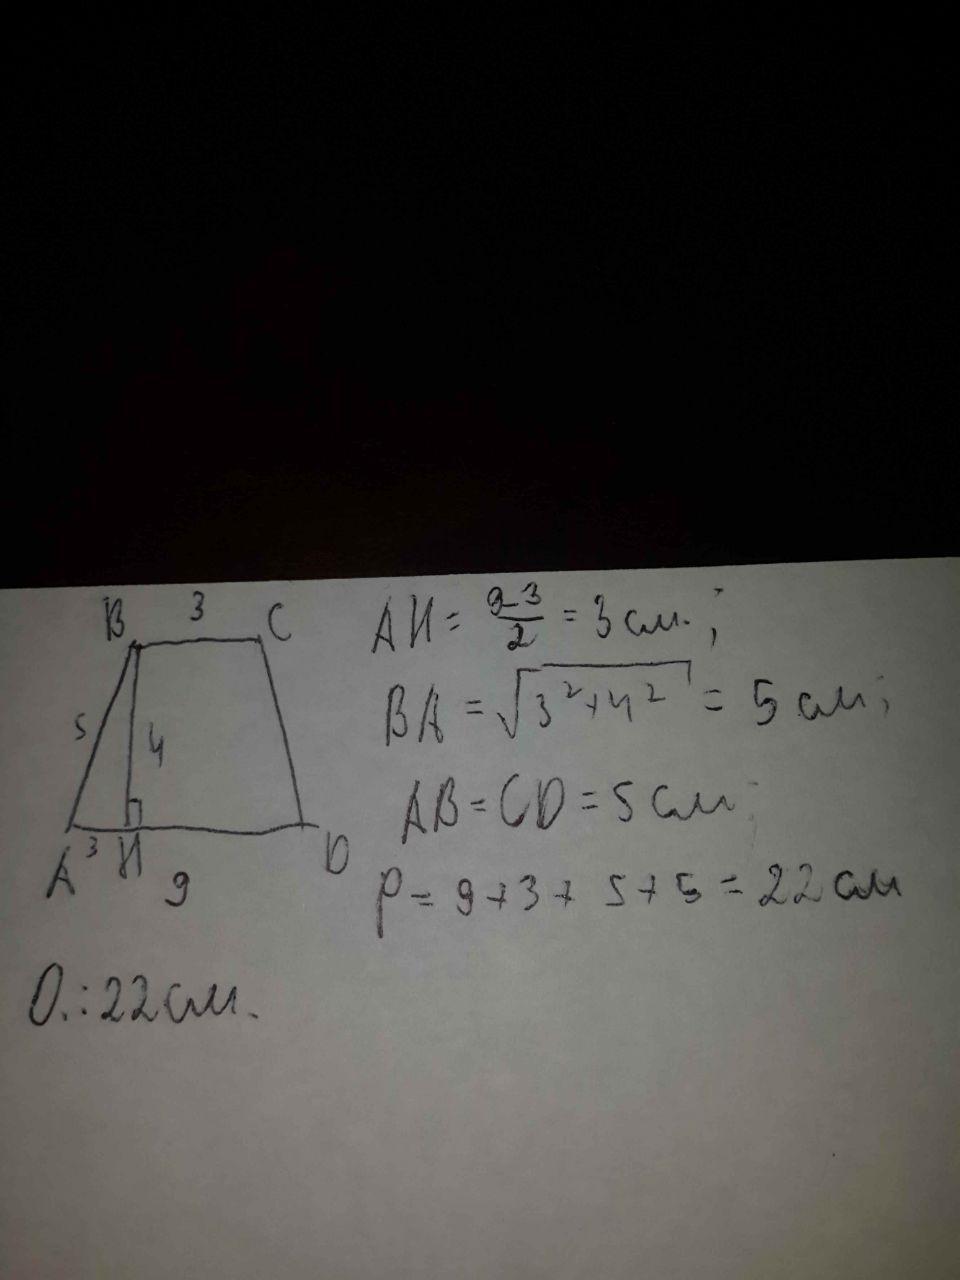 B 3 C
5 4
A 3 H D
9
AH = \frac{9-3}{2} = 3 см.;
BA = √3²+4² = 5 см;
AB = CD = 5 см;
P = 9 + 3 + 5 + 5 = 22 см
О.: 22 см.